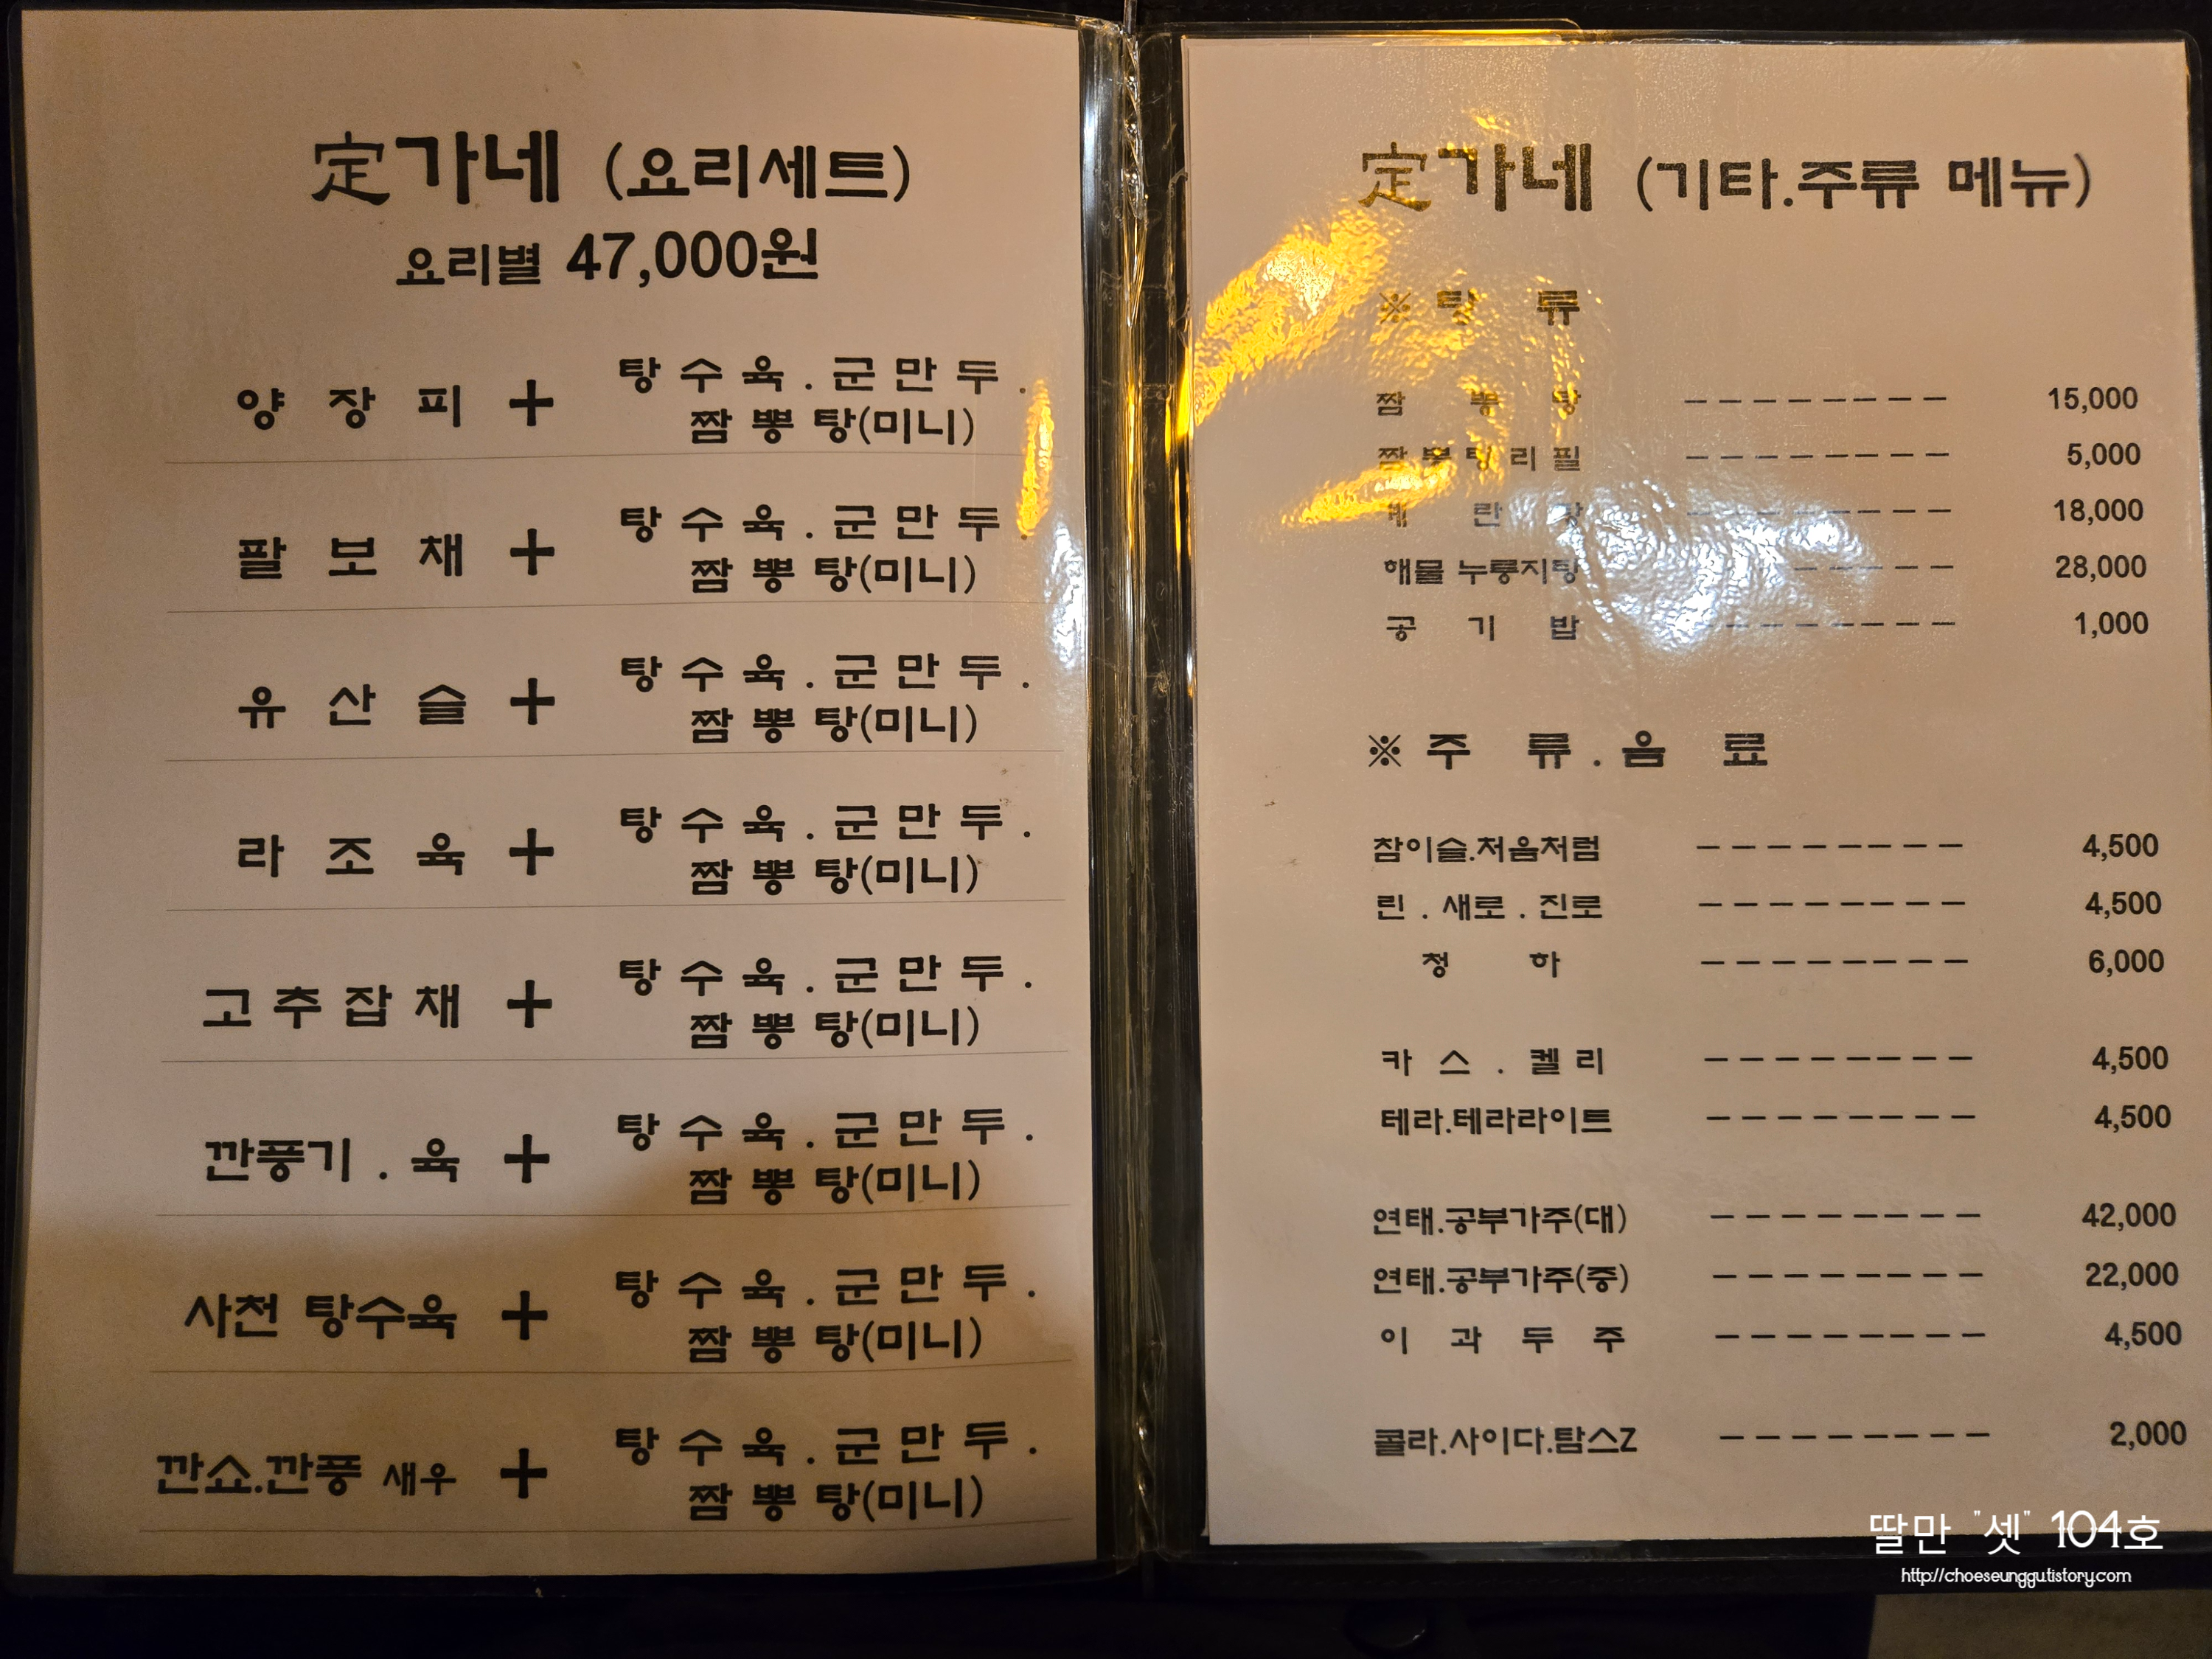 定가네 (요리세트)
요리별 47,000원
양 장 피 + 탕 수 육 . 군 만 두 .
짬 뽕 탕(미니)
팔 보 채 + 탕 수 육 . 군 만 두 .
짬 뽕 탕(미니)
유 산 슬 + 탕 수 육 . 군 만 두 .
짬 뽕 탕(미니)
라 조 육 + 탕 수 육 . 군 만 두 .
짬 뽕 탕(미니)
고 추 잡 채 + 탕 수 육 . 군 만 두 .
짬 뽕 탕(미니)
깐풍기 . 육 + 탕 수 육 . 군 만 두 .
짬 뽕 탕(미니)
사천 탕수육 + 탕 수 육 . 군 만 두 .
짬 뽕 탕(미니)
깐쇼.깐풍 새우 + 탕 수 육 . 군 만 두 .
짬 뽕 탕(미니)
定가네 (기타.주류 메뉴)
※ 탕 류
짬 뽕 탕 -------- 15,000
짬 뽕 탕 리 필 -------- 5,000
란 -------- 18,000
해물 누룽지탕 -------- 28,000
공 기 밥 -------- 1,000
※ 주 류 . 음 료
참이슬.처음처럼 -------- 4,500
린 . 새로 . 진로 -------- 4,500
청 하 -------- 6,000
카 스 . 켈 리 -------- 4,500
테라.테라라이트 -------- 4,500
연태.공부가주(대) -------- 42,000
연태.공부가주(중) -------- 22,000
이 과 두 주 -------- 4,500
콜라.사이다.탐스Z -------- 2,000
딸만 "셋" 104호
http://choeseunggutistory.com